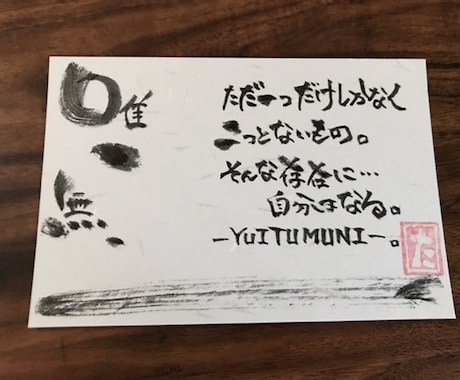 唯一無二
ただ一つだけしかなく
二つとないもの。
そんな存在に…
自分はなる。
-YUITUMUNI-。
た